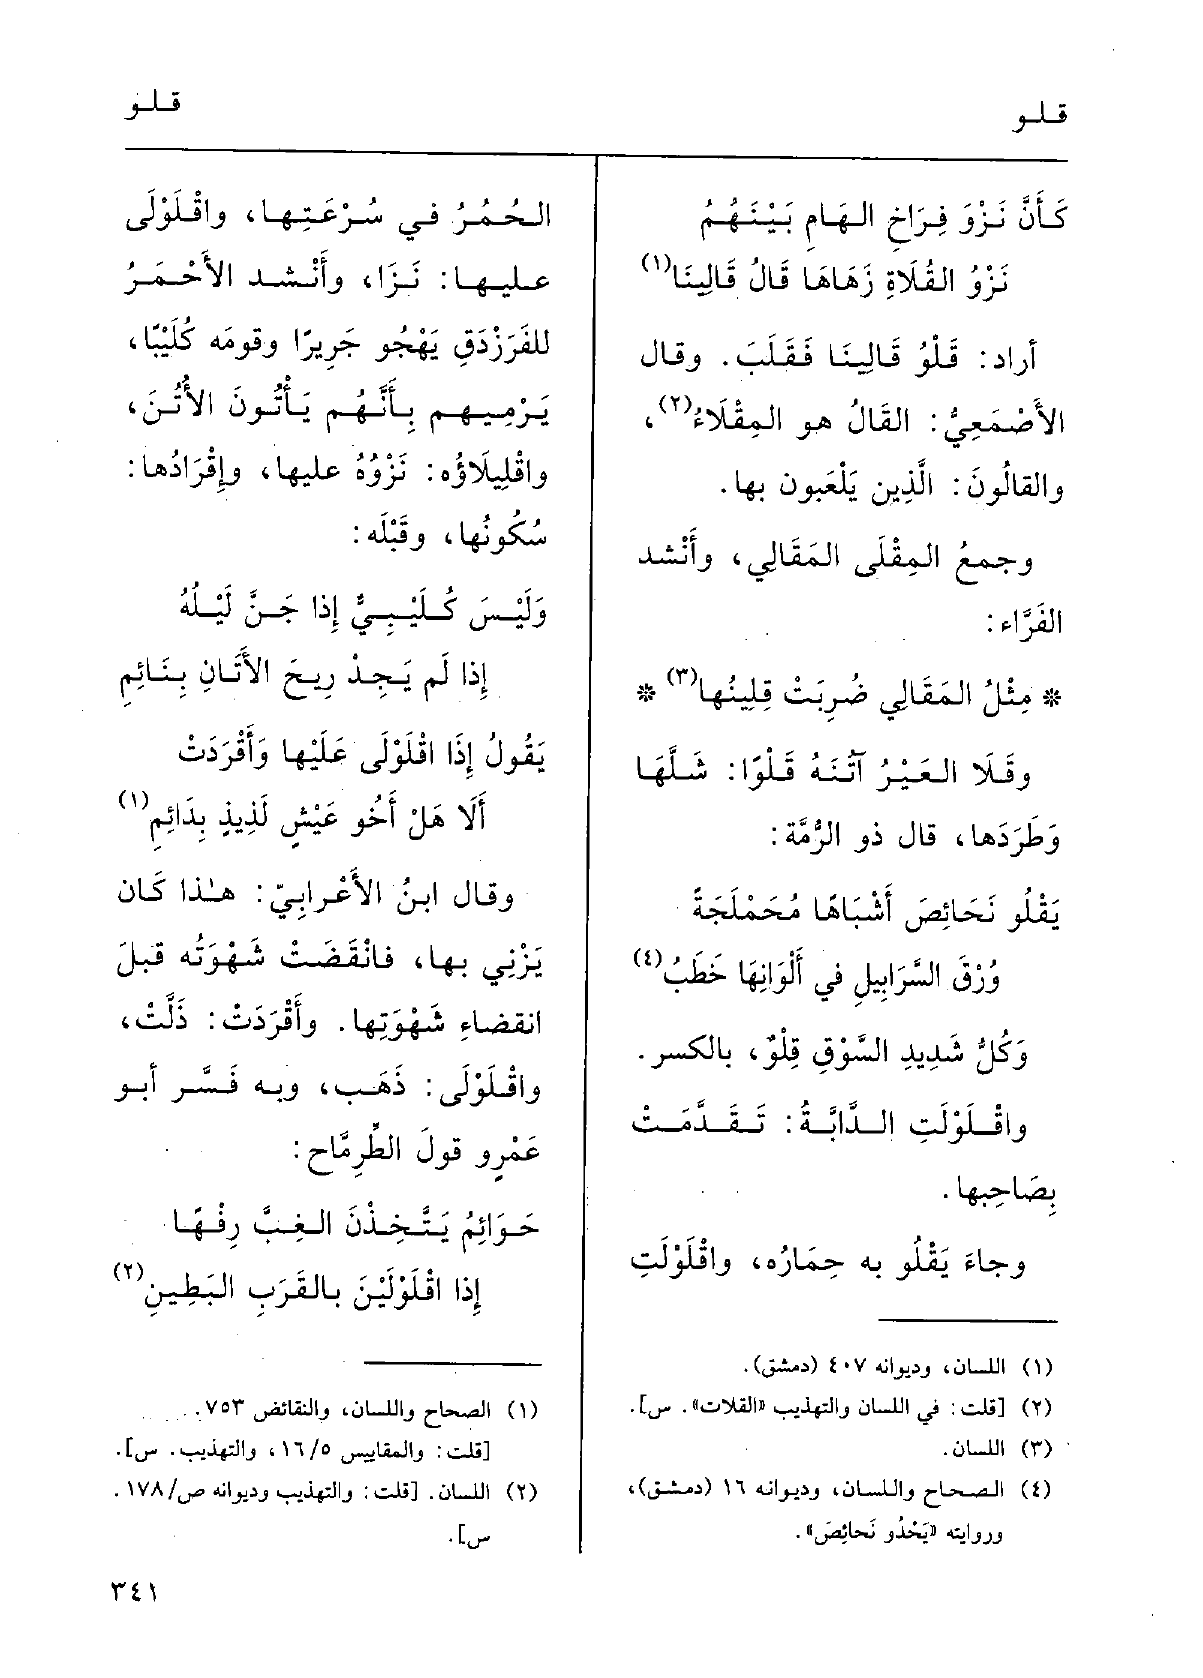 قلو
قلو
كَأَنَّ نَزْوَ فِرَاخِ الهَامِ بَيْنَهُمُ
نَزْوُ القُلَاةِ زَهَاهَا قَالُ قَالِينَا(١)
أراد: قَلْوُ قَالِينَا فَقَلَبَ. وقال
الأَصْمَعِيُّ: القَالُ هو المِقْلَاءُ(٢)،
والقالُونَ: الَّذِين يَلْعَبون بها.
وجمعُ المِقْلَى المَقَالِي، وأَنْشد
الفَرَّاء:
* مِثْلُ المَقَالِي ضُرِبَتْ قِلِينُها(٣) *
وقَلَا العَيْرُ آتُنَهُ قَلْوًا: شَلَّهَا
وَطَرَدَها، قال ذو الرُّمَّة:
يَقْلُو نَحَائِصَ أَشْبَاهًا مُحَمْلَجَةً
وُرْقَ السَّرَابِيلِ في أَلْوَانِهَا خَطَبُ(٤)
وَكُلُّ شَدِيدِ السَّوْقِ قِلْوٌ، بالكسر.
واقْلَوْلَتِ الدَّابَّةُ: تَقَدَّمَتْ
بِصَاحِبها.
وجاءَ يَقْلُو به حِمَارُه، واقْلَوْلَتِ
(١) اللسان، وديوانه ٤٠٧ (دمشق).
(٢) [قلت: في اللسان والتهذيب «القلات». س].
(٣) اللسان.
(٤) الصحاح واللسان، وديوانه ١٦ (دمشق)،
وروايته «يَحْدُو نَحائِصَ».
الحُمُرُ في سُرْعَتِها، واقْلَوْلَى
عليها: نَزَا، وأَنْشد الأَحْمَرُ
للفَرَزْدَقِ يَهْجُو جَرِيرًا وقومَه كُلَيْبًا،
يَرْمِيهم بِأَنَّهُم يَأْتُونَ الأُتُنَ،
واقْلِيلَاؤُه: نَزْوُهُ عليها، وإِقْرَادُها:
سُكُونُها، وقَبْلَه:
وَلَيْسَ كُلَيْبِيٌّ إِذا جَنَّ لَيْلُهُ
إِذا لَم يَجِدْ رِيحَ الأَتَانِ بِنَائِمِ
يَقُولُ إِذَا اقْلَوْلَى عَلَيْها وَأَقْرَدَتْ
أَلَا هَلْ أَخُو عَيْشٍ لَذِيذٍ بِدَائِمِ(١)
وقال ابنُ الأَعْرابِيّ: هٰذا كَان
يَزْنِي بها، فانْقَضَتْ شَهْوَتُه قبلَ
انقضاءِ شَهْوَتِها. وأَقْرَدَتْ: ذَلَّتْ،
واقْلَوْلَى: ذَهَب، وبه فَسَّر أبو
عَمْرٍو قولَ الطِّرِمَّاح:
حَوَائِمُ يَتَّخِذْنَ الغِبَّ رِفْهًا
إِذا اقْلَوْلَيْنَ بالقَرَبِ البَطِينِ(٢)
(١) الصحاح واللسان، والنقائض ٧٥٣.
[قلت: والمقاييس ١٦/٥، والتهذيب. س].
(٢) اللسان. [قلت: والتهذيب وديوانه ص/١٧٨.
س].
٣٤١